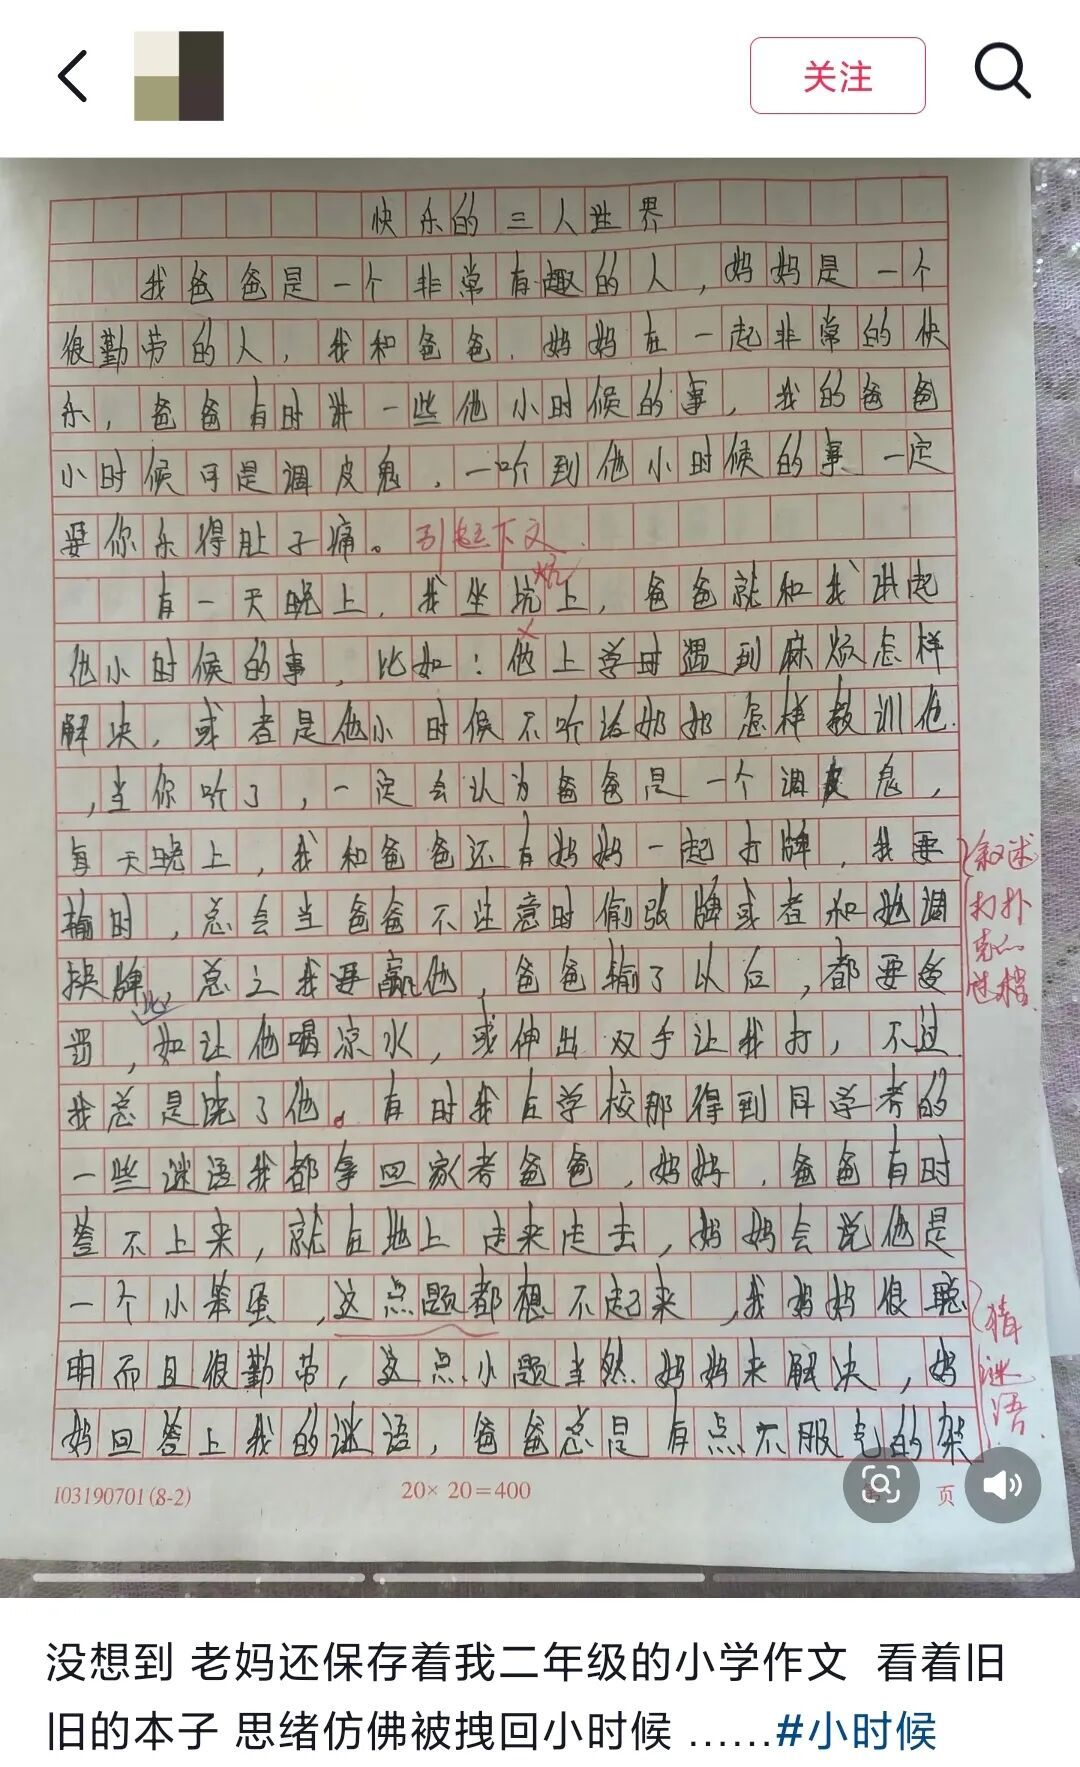 关注
快乐的三人世界
我爸爸是一个非常有趣的人,妈妈是一个
很勤劳的人,我和爸爸、妈妈在一起非常的快
乐,爸爸有时讲一些他小时候的事,我的爸爸
小时候可是调皮鬼,一听到他小时候的事、一定
要你乐得肚子痛。引起下文
炕
有一天晚上,我坐坑上,爸爸就和我讲起
他小时候的事,比如:他上学时遇到麻烦怎样
解决,或者是他小时候不听话奶奶怎样教训他
,当你听了,一定会认为爸爸是一个调皮鬼,
每天晚上,我和爸爸还有妈妈一起打牌,我要
输时,总会当爸爸不注意时偷张牌或者和她调
换牌,总之我要赢他,爸爸输了以后,都要受
罚,如让他喝凉水,或伸出双手让我打,不过
我总是饶了他。有时我在学校那得到同学考的
一些谜语我都拿回家考爸爸,妈妈,爸爸有时
答不上来,就在地上走来走去,妈妈会说他是
一个小笨蛋,这点题都想不起来,我妈妈很聪
明而且很勤劳,这点小题当然妈妈来解决,妈
妈回答上我的谜语,爸爸总是有点不服气的样
叙述
打扑
克的
过程
猜
谜
语
I03190701(8-2)
20×20=400
页
没想到 老妈还保存着我二年级的小学作文 看着旧
旧的本子 思绪仿佛被拽回小时候 ……#小时候